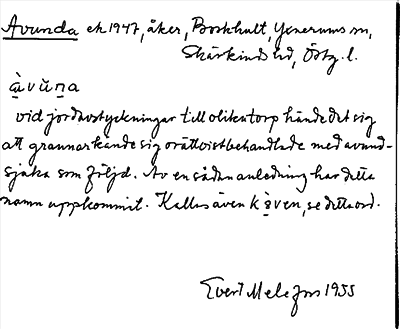 Avunda ek 1947, åker, Boskhult, Yxnerums sn,
Skärkinds hd, Östg. l.
à̱vŭṉa
vid jordavstyckningar till olika torp hände det sig
att grannar kände sig orättvist behandlade med avund-
sjuka som följd. Av en sådan anledning har detta
namn uppkommit. Kallas även k à̱ven, se detta ord.
Evert Melefors 1955